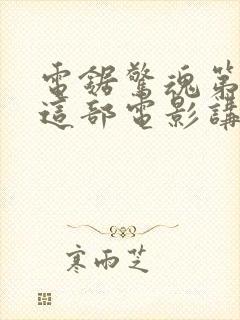 電鋸驚魂第
這部電影講
寒雨芝